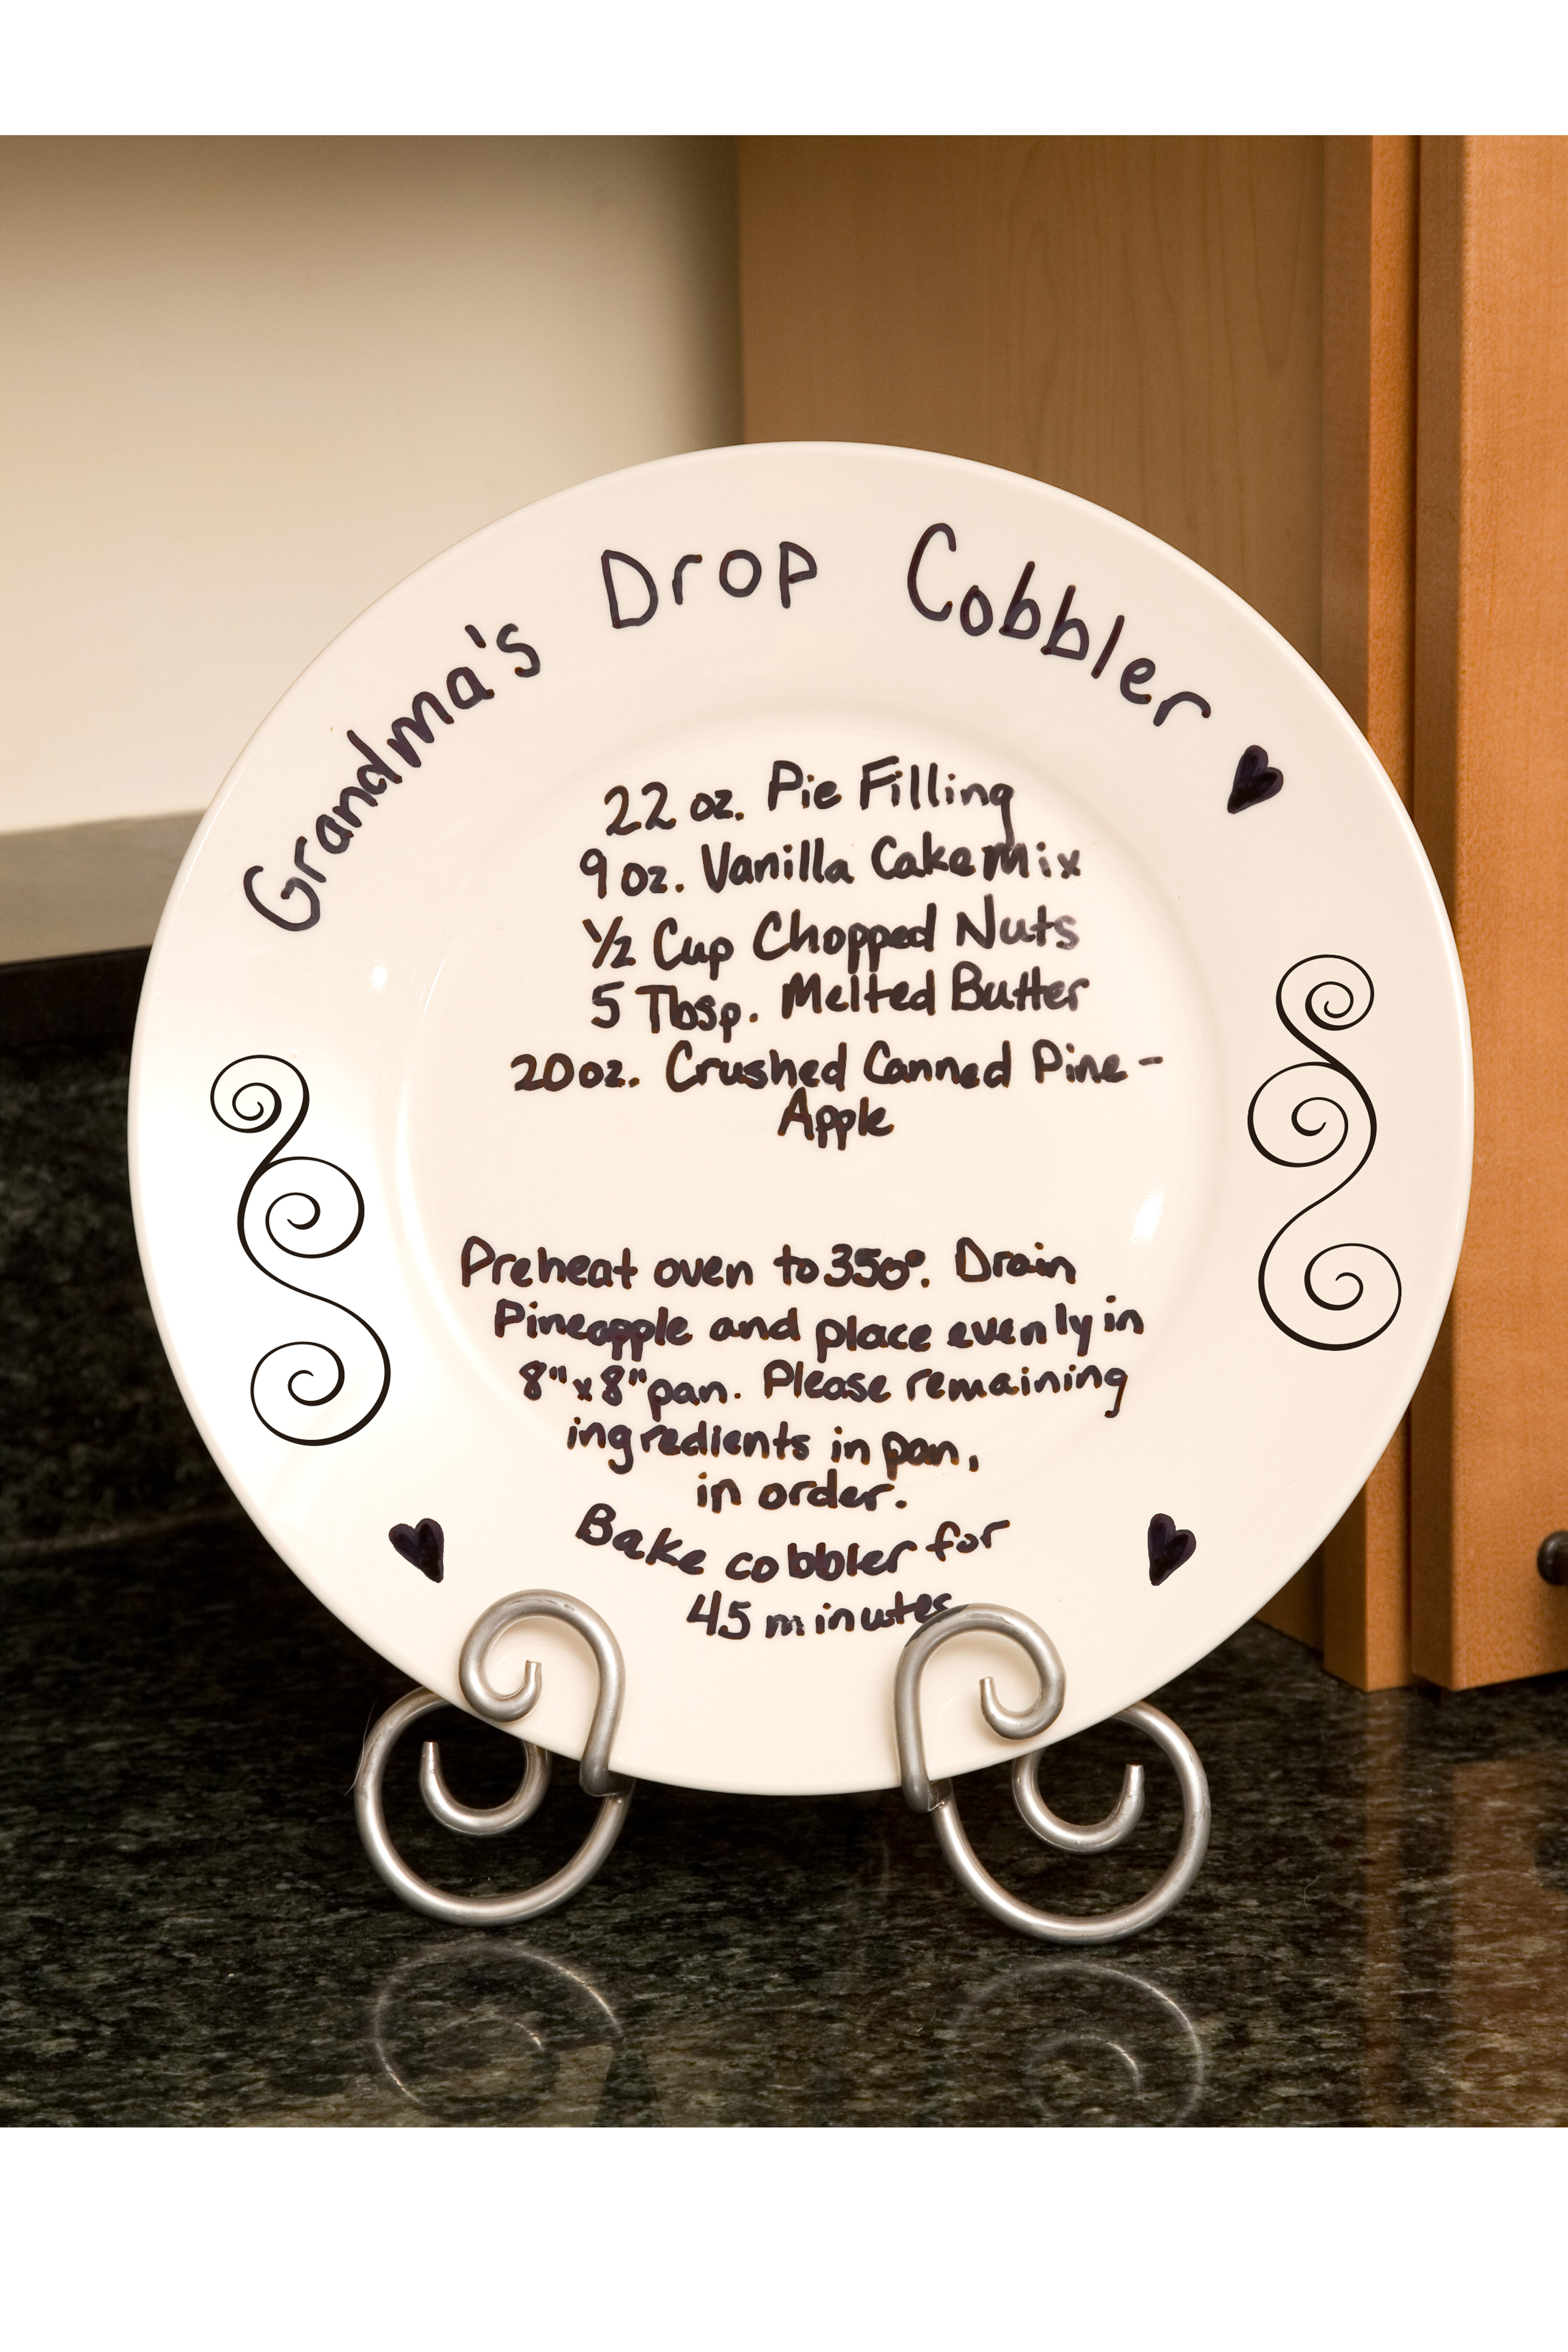 Grandma's Drop Cobbler
22 oz. Pie Filling
9 oz. Vanilla Cake Mix
½ Cup Chopped Nuts
5 Tbsp. Melted Butter
20 oz. Crushed Canned Pine-
Apple
Preheat oven to 350°. Drain
Pineapple and place evenly in
8"x8" pan. Please remaining
ingredients in pan,
in order.
Bake cobbler for
45 minutes